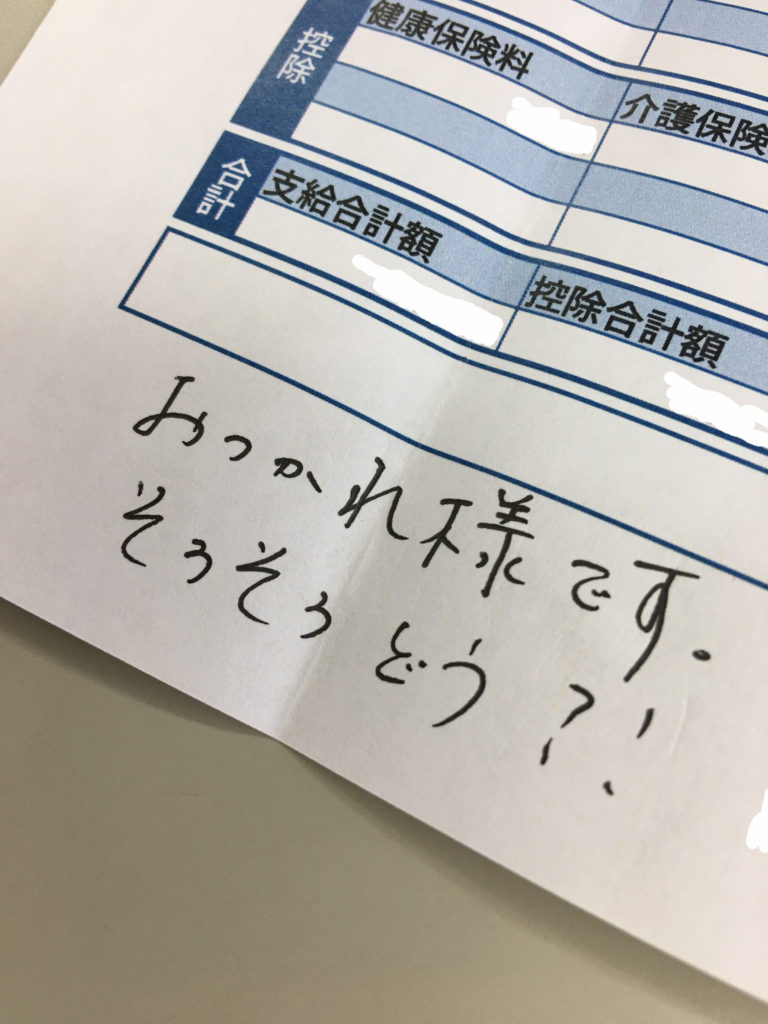 控除
健康保険料
介護保険
合計
支給合計額
控除合計額
おつかれ様です。
そろそろどう?!